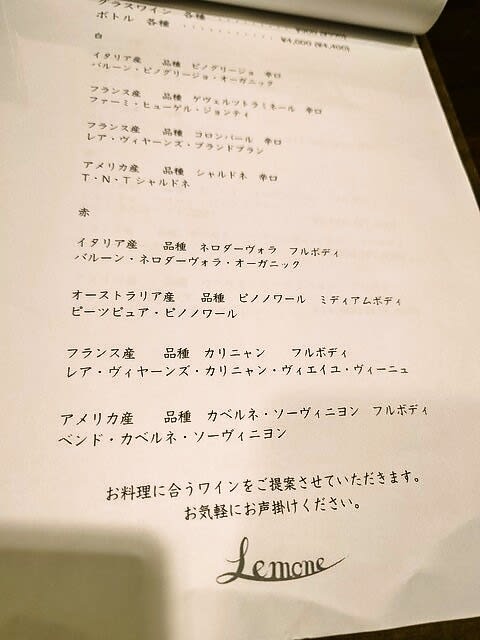 グラスワイン 各種 ············ ¥900 (¥990)
ボトル 各種 ············ ¥4,000 (¥4,400)
白
イタリア産 品種 ピノグリージョ 辛口
バルーン・ピノグリージョ・オーガニック
フランス産 品種 ゲヴェルツトラミネール 辛口
ファーミ・ヒューゲル・ジョンティ
フランス産 品種 コロンバール 辛口
レア・ヴィヤーンズ・ブランドブラン
アメリカ産 品種 シャルドネ 辛口
T・N・T シャルドネ
赤
イタリア産 品種 ネロダーヴォラ フルボディ
バルーン・ネロダーヴォラ・オーガニック
オーストラリア産 品種 ピノノワール ミディアムボディ
ピーツピュア・ピノノワール
フランス産 品種 カリニャン フルボディ
レア・ヴィヤーンズ・カリニャン・ヴィエイユ・ヴィーニュ
アメリカ産 品種 カベルネ・ソーヴィニヨン フルボディ
ベンド・カベルネ・ソーヴィニヨン
お料理に合うワインをご提案させていただきます。
お気軽にお声掛けください。
Lemone